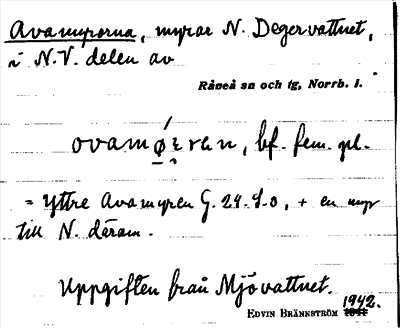 Avamyrorna, myrar N. Degervattnet,
i N.V. delen av
Råneå sn och tg, Norrb. l.
bf. fem. pl.
= Yttre Avamyren G. 24. + en myr
till N. därom.
Uppgiften från Mjövattnet.
1942.
EDVIN BRÄNNSTRÖM 1941